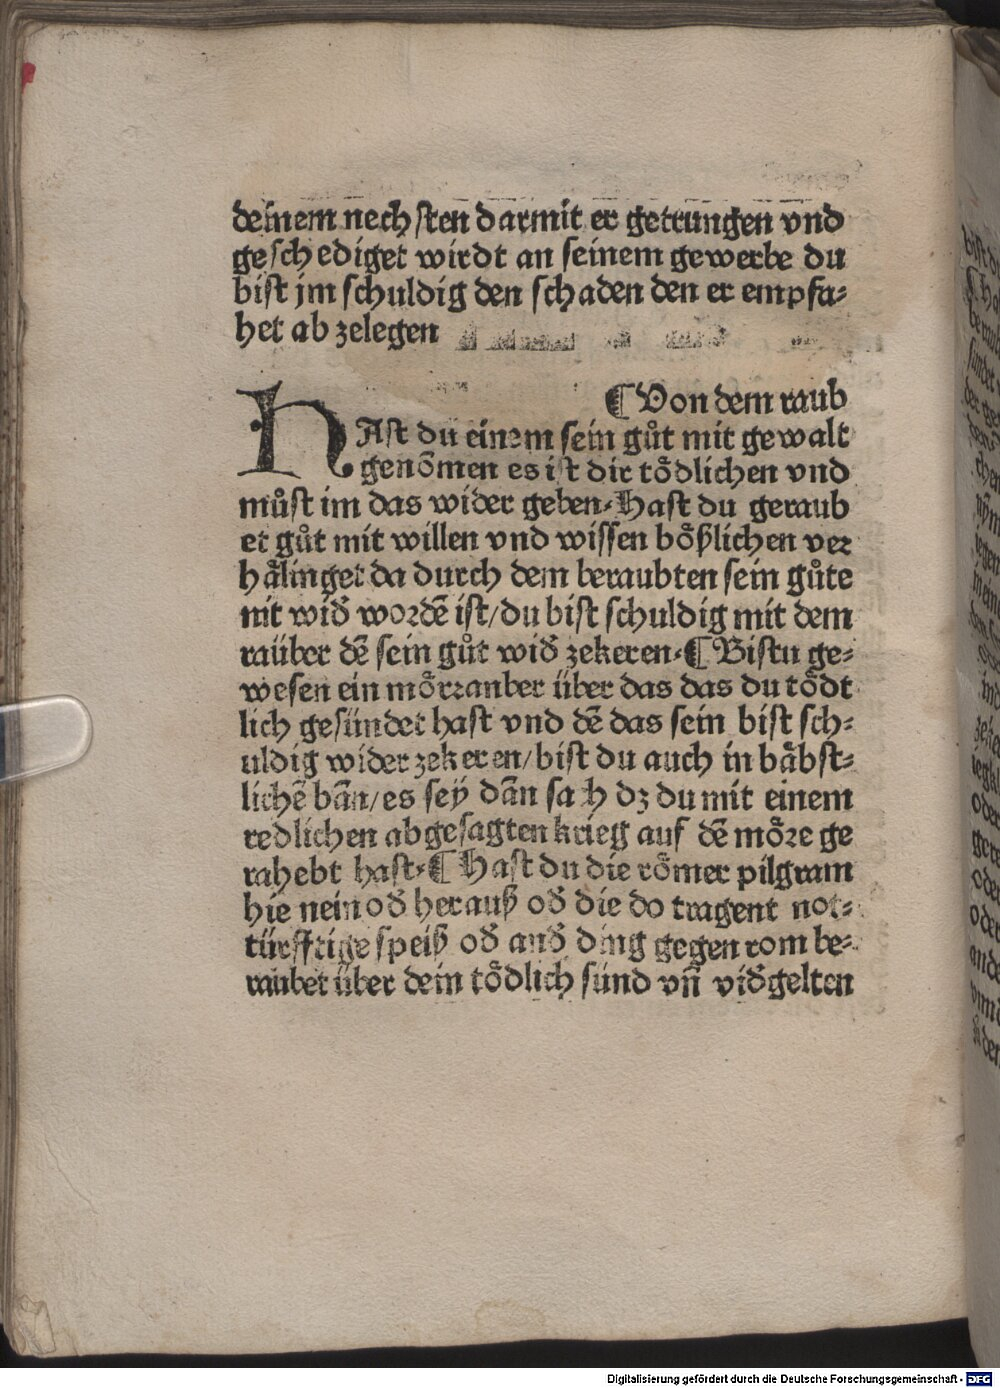 deinem nechsten darmit er getrungen vnd
geschediget wirdt an seinem gewerbe du
bist jm schuldig den schaden den er empfa⸗
het ab zelegen
¶ Von dem raub
HAst du einem sein gůt mit gewalt
genõmen es ist dir tödlichen vnd
můst im das wider geben. Hast du geraub
et gůt mit willen vnd wissen bößlichen ver
hälinget da durch dem beraubten sein gůte
nit wiđ wordẽ ist/ du bist schuldig mit dem
raüber dẽ sein gůt wiđ zekeren. ¶ Bistu ge⸗
wesen ein mörrauber über das das du tödt
lich gesündet hast vnd dẽ das sein bist sch⸗
uldig wider zekeren/ bist du auch in bäbst⸗
lichẽ bãn/ es sey dãn sach dz du mit einem
redlichen abgesagten krieg auf dẽ möre ge
rahebt hast. ¶ Hast du die römer pilgram
hie nein ođ herauß ođ die do tragent not⸗
türfftige speiß ođ anđ ding gegen rom be⸗
raubet über dein tödlich sünd vñ viđgelten
Digitalisierung gefördert durch die Deutsche Forschungsgemeinschaft - DFG